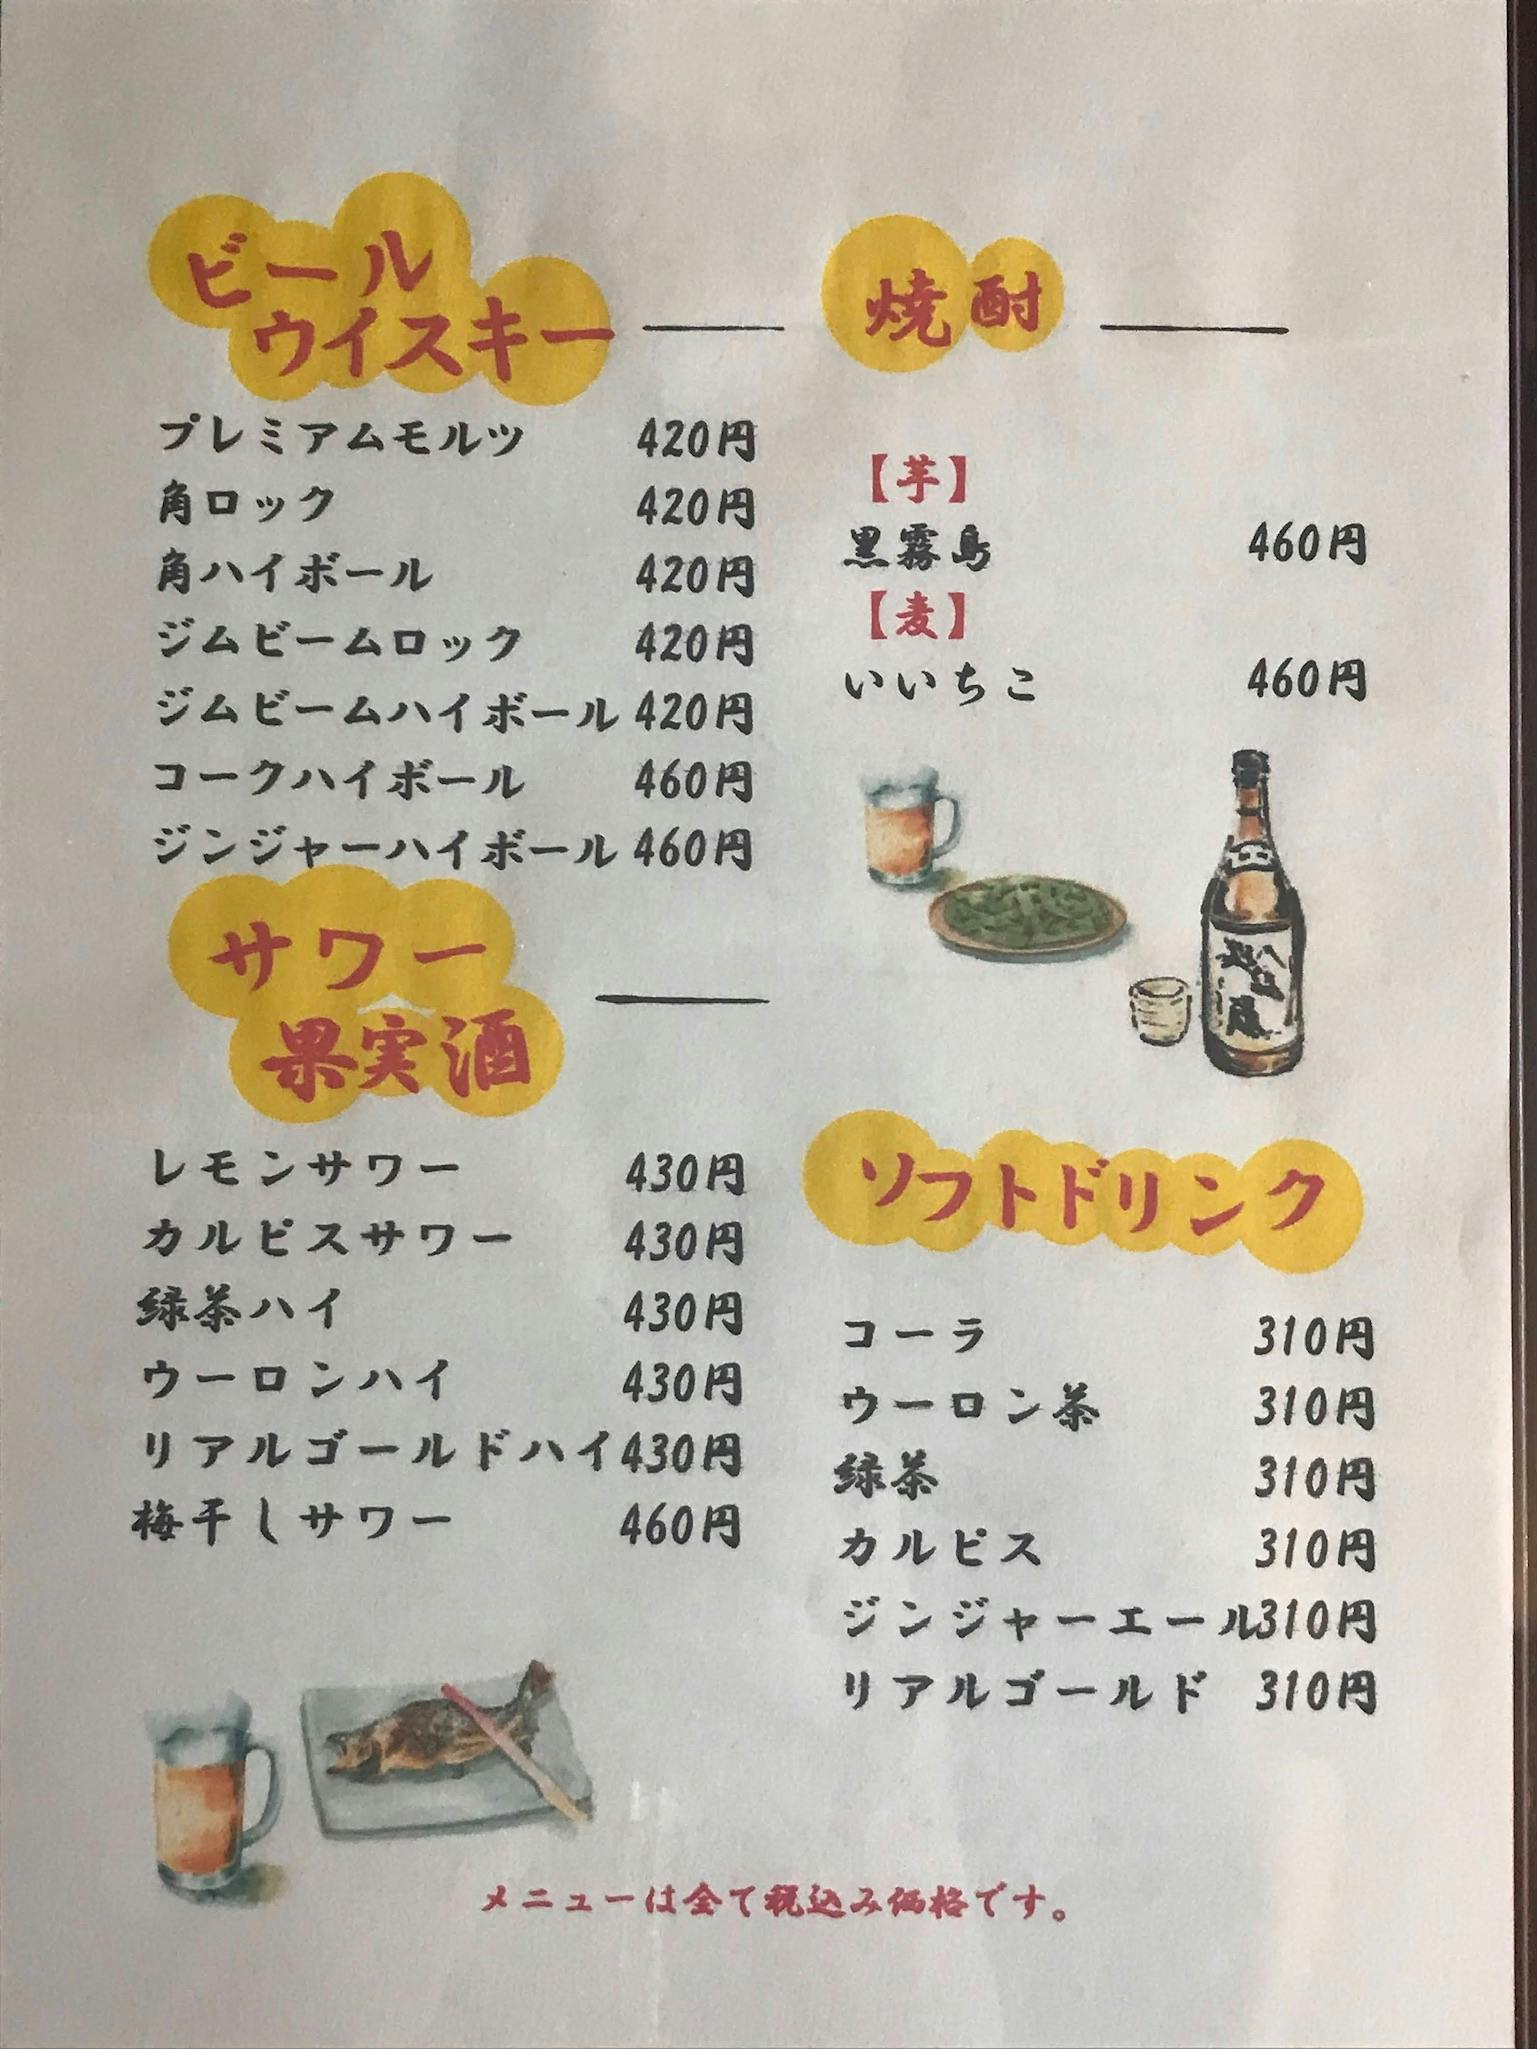 ビール
ウイスキー
プレミアムモルツ 420円
角ロック 420円
角ハイボール 420円
ジムビームロック 420円
ジムビームハイボール 420円
コークハイボール 460円
ジンジャーハイボール 460円
サワー
果実酒
レモンサワー 430円
カルピスサワー 430円
緑茶ハイ 430円
ウーロンハイ 430円
リアルゴールドハイ 430円
梅干しサワー 460円
焼酎
【芋】
黒霧島 460円
【麦】
いいちこ 460円
ソフトドリンク
コーラ 310円
ウーロン茶 310円
緑茶 310円
カルピス 310円
ジンジャーエール 310円
リアルゴールド 310円
メニューは全て税込み価格です。